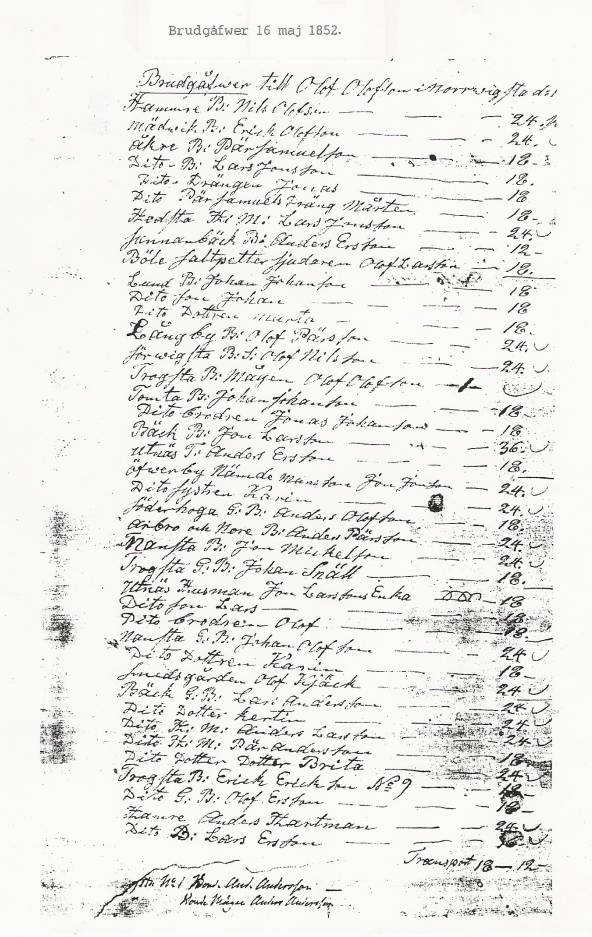 Brudgåfwer 16 maj 1852.
Brudgåfwer till Olof Olofson i Norrwigsta d
Hammre B: Nils Olofson — 24.
Mädwik B: Erick Olofson — 24.
åkre B: Pär Samuelson — 18.
Dito B: Lars Jonsson — 18.
Dito Drängen Jonas — 18
Dito Pär Samuels Dräng Mårten — 18.
Hedsta Th: M: Lars Jonsson — 24.
Sunnanbäck B: Anders Ersson — 12
Böle Saltpetter Sjudaren Olof Larsson — 18.
Lund B: Johan Johanson — 18
Dito Son Johan — 18
Dito Dottren Marta — 18.
Långby B: Olof Pärsson — 24.
Sörwigsta B: S: Olof Nilsson — 24.
Trogsta B: Mågen Olof Olofson — 1 —
Tomta B: Johan Johanson — 18
Dito brodren Jonas Johanson — 18
Bäck B: Jon Larsson — 36.
Utnäs T: Anders Ersson — 18.
öfwerby Nämde Mansson Jon Jonson — 24.
Dito Systren Karin — 24.
Söderhoga G: B: Anders Olofson — 18.
Arbro och Nore B: Anders Pärsson — 24
Mansta B: Jon Mickelson — 24.
Trogsta G: B: Johan Snäll — 18.
Utnäs Husman Jon Larssons Enka — 18
Dito Son Lars — 18
Dito brodren Olof — 18.
Mansta G: B: Johan Olofson — 24
Dito Dottren Karin — 18
Smidsgården Olof Kjäck — 24
Bäck G: B: Lars Anderson — 24
Dito Dotter Kertin — 24
Dito Th: M: Anders Larsson — 24
Dito Th: M: Pär Andersson — 24
Dito Dotter Dotter Brita — 18
Trogsta B: Erick Erickson No 9 — 24
Dito G: B: Olof Ersson — 18
Anders Hartman — 24
Dito B: Lars Ersson — 36
Transport 18 — 12
No 1 And. Andersson —
Mågen Anders Andersson